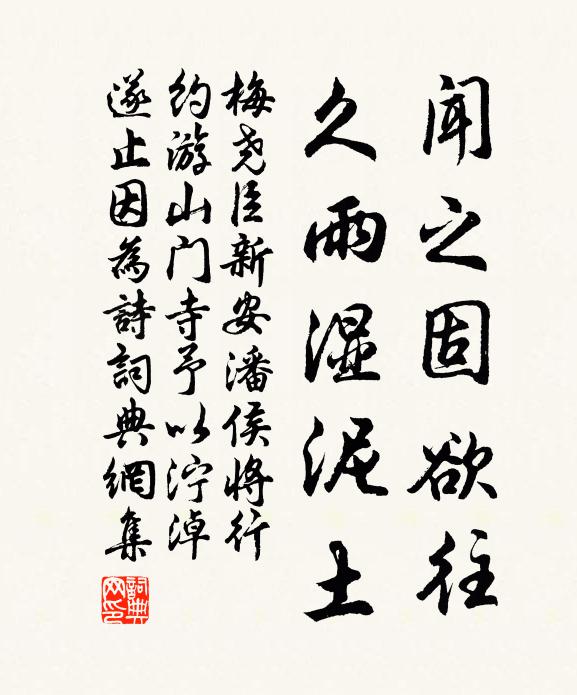 闻之固欲往
久雨湿泥土
梅尧臣新安潘侯将行
约游山门寺予以泞淖
遂止因為詩詞典網集
詞典網印